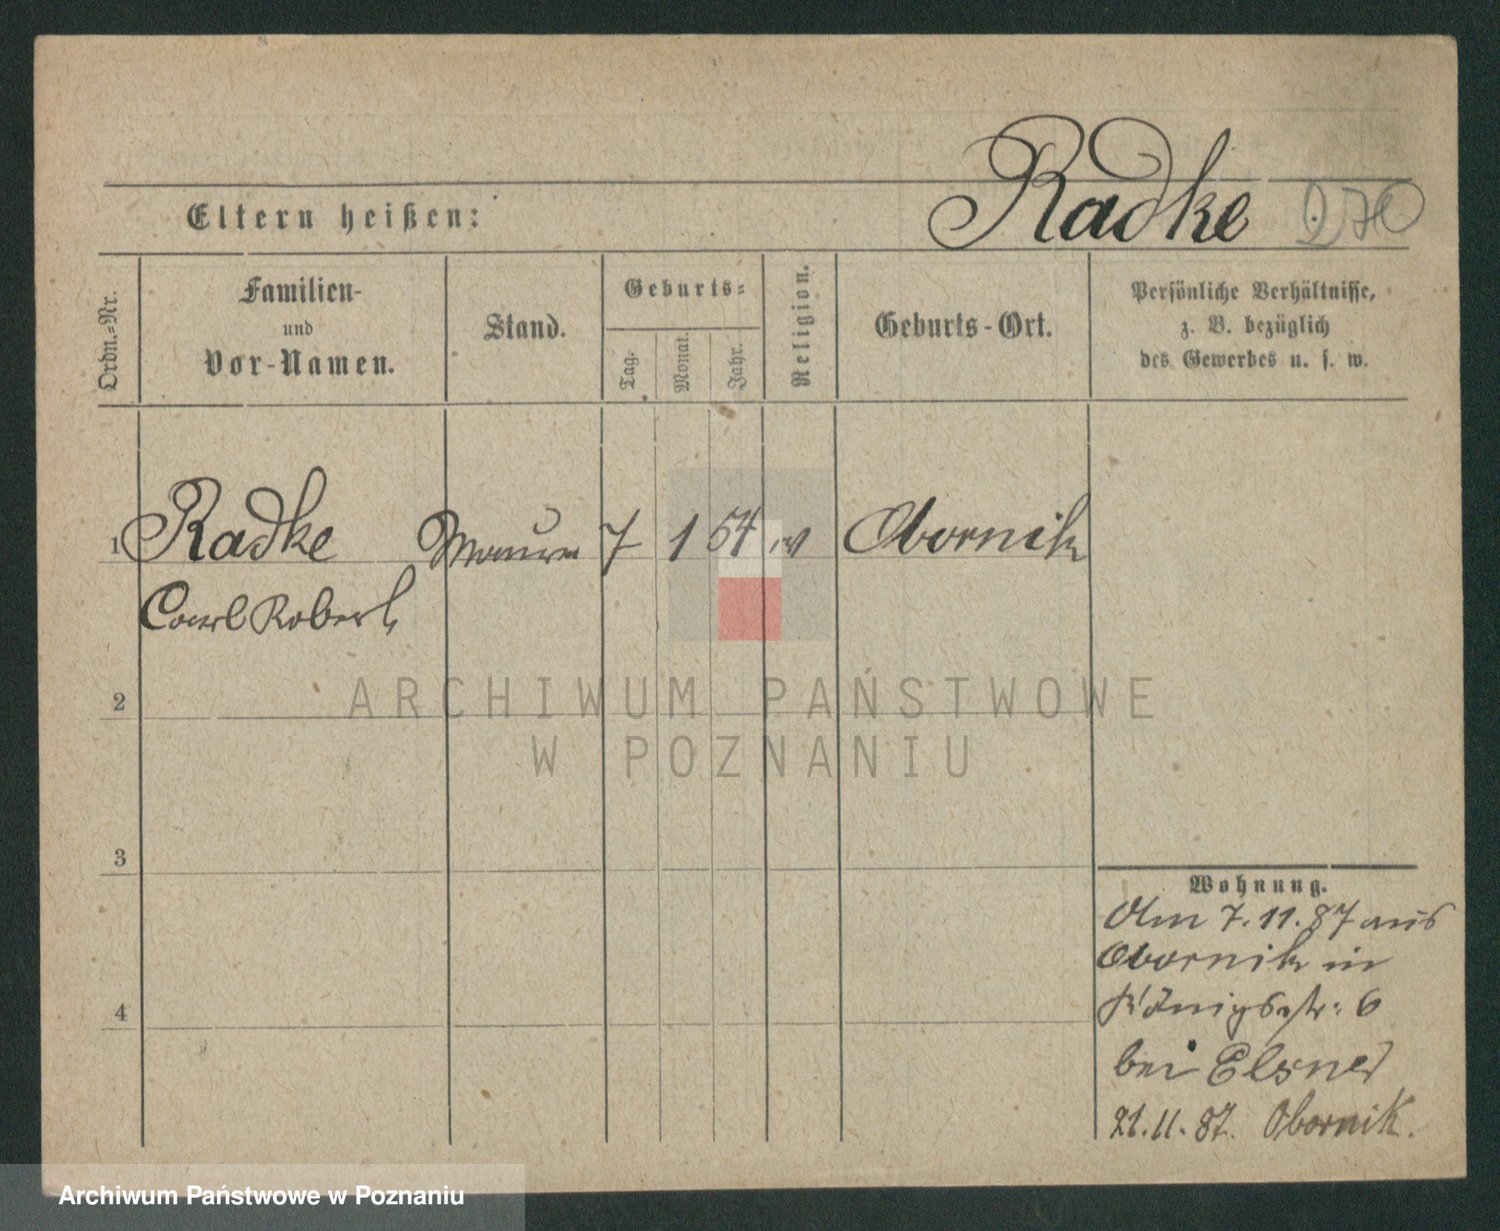 Radke
Eltern heißen:
Ordn.=Nr.
Familien-
und
Vor-Namen.
Stand.
Geburts=
Tag.
Monat.
Jahr.
Religion.
Geburts-Ort.
Persönliche Verhältnisse,
z. B. bezüglich
des Gewerbes u. s. w.
1 Radke Maurer 7 1 54 Obornik
Carl Robert
2
3
4
Wohnung.
Am 7.11.87 aus
Obornik in
Königsstr: 6
bei Elsner
21.11.87. Obornik.
ARCHIWUM PAŃSTWOWE
W POZNANIU
Archiwum Państwowe w Poznaniu